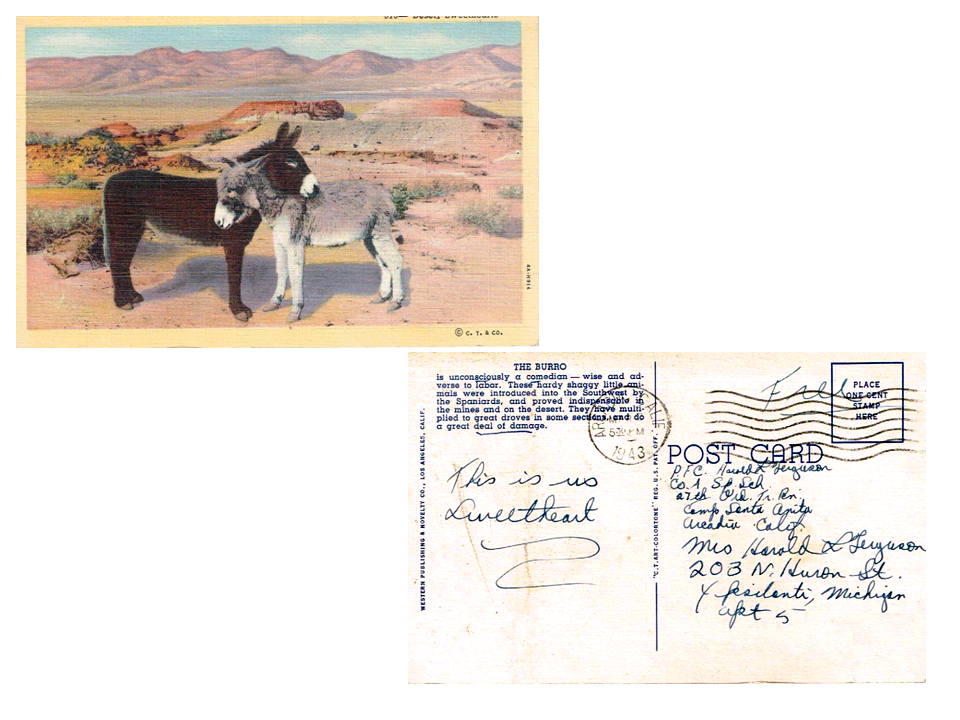 4A-H914
© C. T. & CO.
THE BURRO
is unconsciously a comedian — wise and ad-
verse to labor. These hardy shaggy little ani-
mals were introduced into the Southwest by
the Spaniards, and proved indispensable in
the mines and on the desert. They have multi-
plied to great droves in some sections, and do
a great deal of damage.
WESTERN PUBLISHING & NOVELTY CO., LOS ANGELES, CALIF.
"C.T. ART-COLORTONE" REG. U.S. PAT. OFF.
CALIF
1943
Free
PLACE
ONE CENT
STAMP
HERE
POST CARD
This is us
Sweetheart
P.F.C. Harold L Ferguson
Co. 1. Sp. Sch.
27th Ord. Tr. Bn.
Camp Santa Anita
Arcadia Calif.
Mrs Harold L Ferguson
203 N. Huron St.
Ypsilanti, Michigan
apt 5